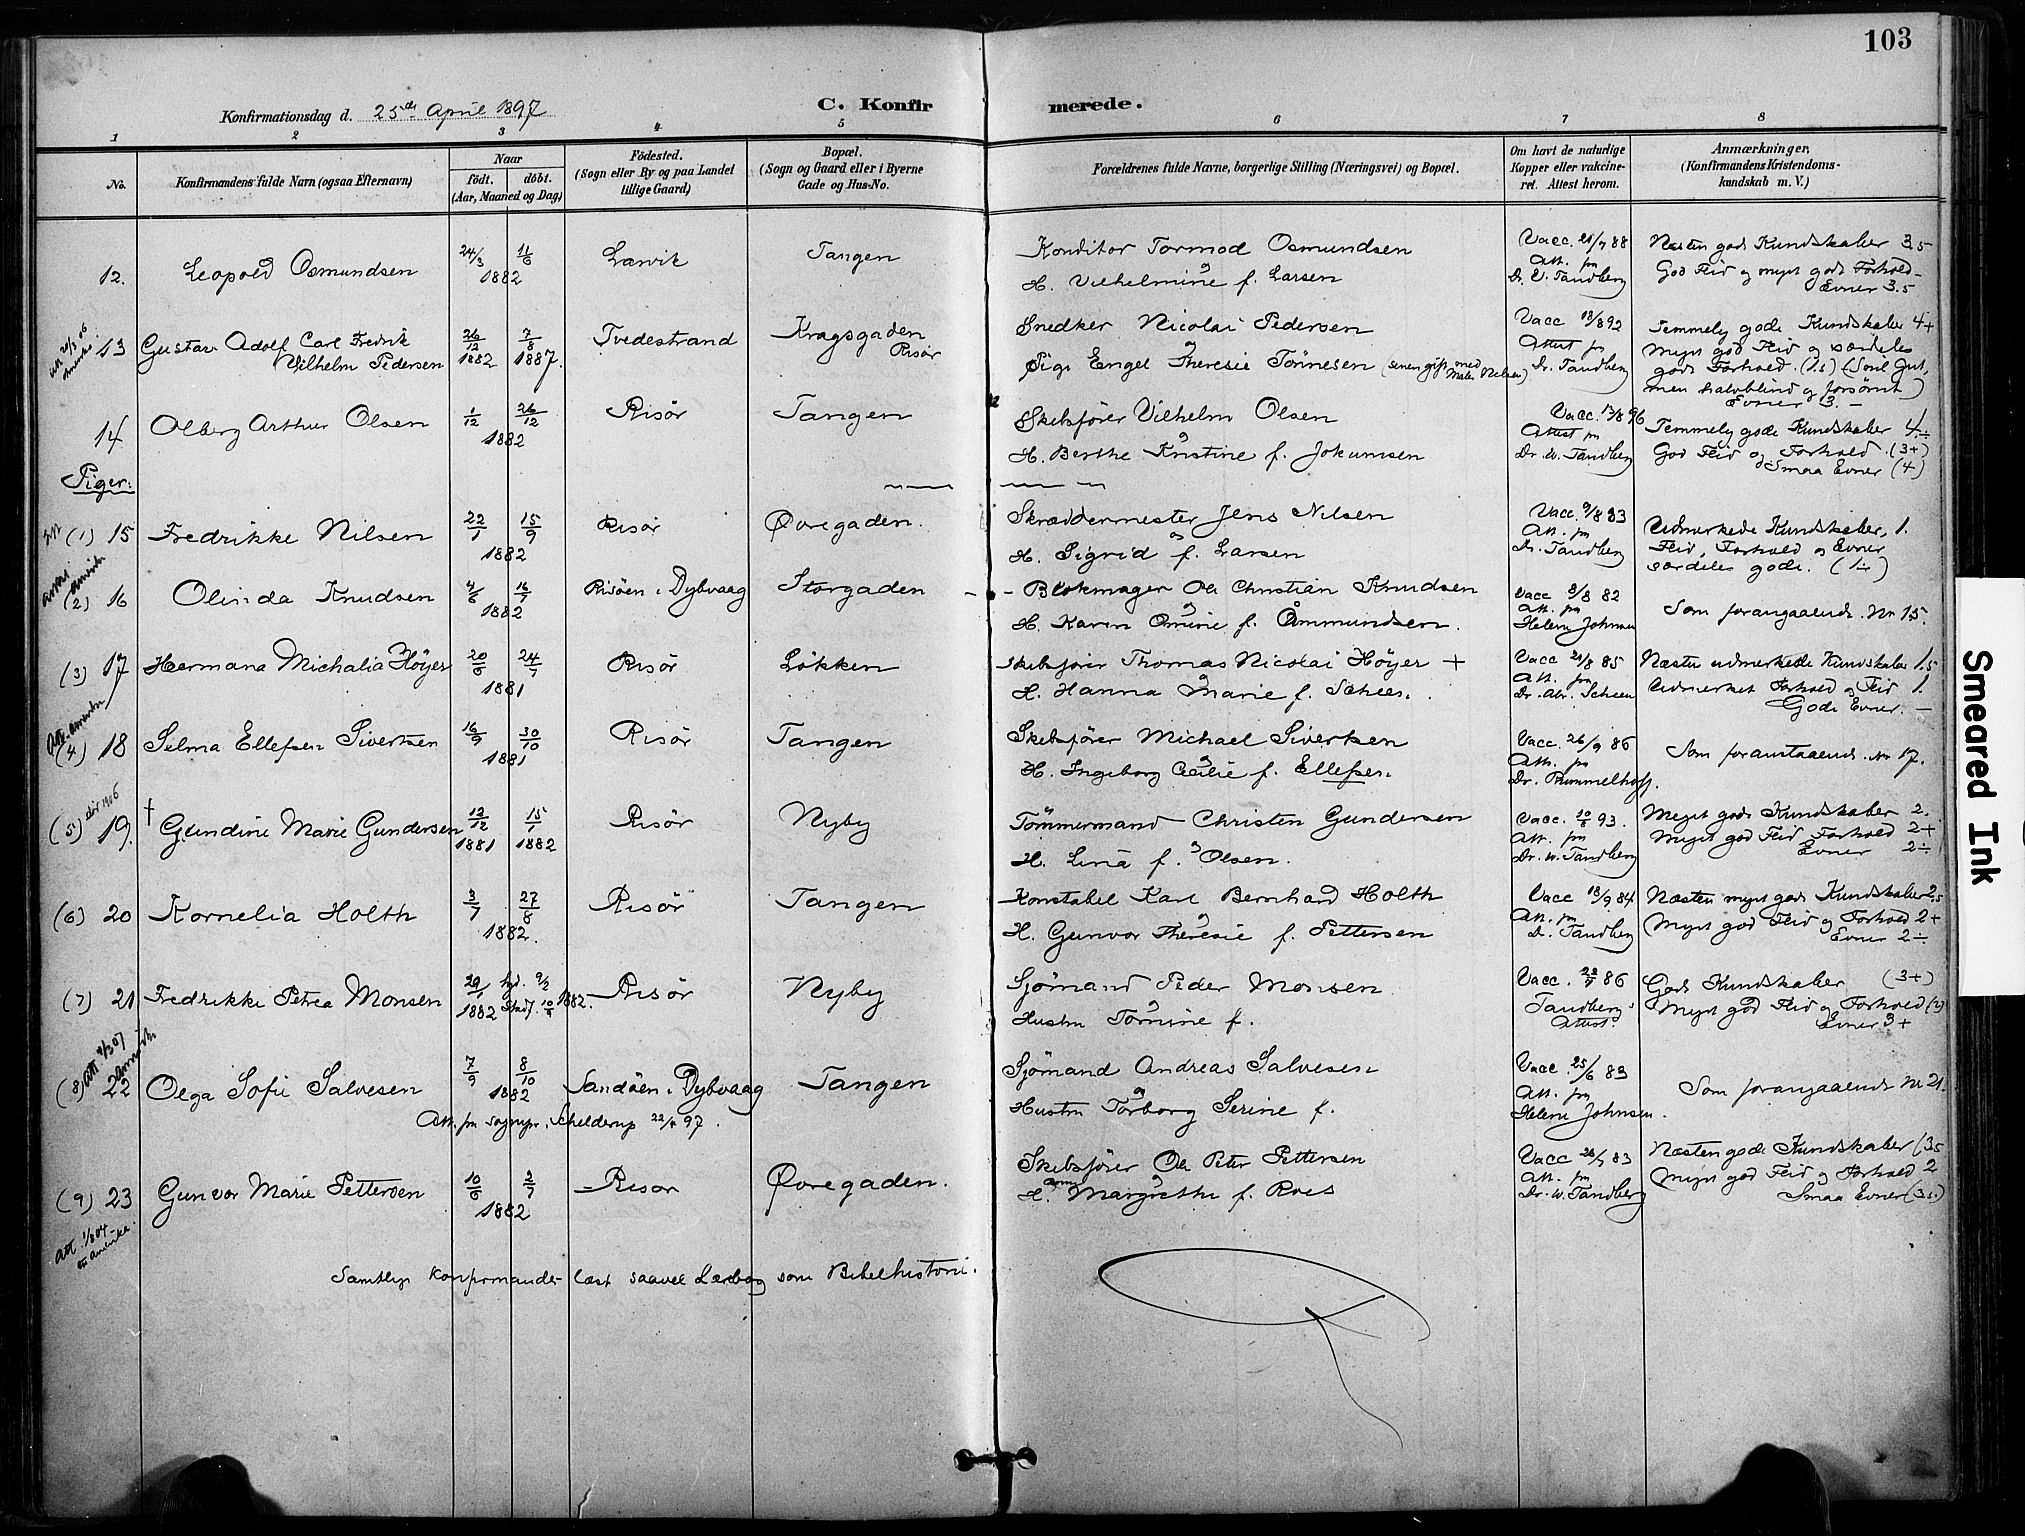 103
Konfirmationsdag d. 25de April 1897
C. Konfirmerede.
1 2 3 4 5 6 7 8
No.
Konfirmandens fulde Navn (ogsaa Efternavn)
Naar
født. døbt.
(Aar, Maaned og Dag)
Födested.
(Sogn eller By og paa Landet
tillige Gaard)
Bopæl.
(Sogn og Gaard eller i Byerne
Gade og Hus-No.
Forældrenes fulde Navne, borgerlige Stilling (Næringsvei) og Bopæl.
Om havt de naturlige
Kopper eller vakcine-
ret. Attest herom.
Anmærkninger,
(Konfirmandens Kristendoms-
kundskab m. V.)
12. Leopold Osmundsen 24/3 11/6 1882 Larvik Tangen
Konditor Tormod Osmundsen
og
H. Vilhelmine f. Larsen
Vacc. 21/7 88
Att. fra
Dr. W. Tandberg
Næsten gode Kundskaber 3.5
God Flid og meget godt Forhold -
Evner 3.5
13 Gustav Adolf Carl Fredrik
Vilhelm Pedersen
26/12 1882 7/8 1887. Tvedestrand Kragsgaden
Risör
Snedker Nicolai Pedersen
og
Pige Engel Theresie Tönnesen (senere gift med
Maler Nilsen)
Vacc 18/8 92
Attest fra
Dr. Tandberg
Temmelig gode Kundskaber 4+
Meget god Flid og særdeles
godt Forhold. (1.5) (Snil Gut,
men halvblind og forsømt)
Evner 3. -
14 Olberg Arthur Olsen 1/12 26/12 1882 Risör Tangen
Skibsfører Vilhelm Olsen
og
H. Berthe Kristine f. Jokumsen
Vacc. 13/8 96
Attest fra
Dr. W. Tandberg
Temmelig gode Kundskaber 4÷
God Flid og Forhold. (3+)
Smaa Evner (4)
Piger:
(1) 15 Fredrikke Nilsen 22/1 15/9 1882 Risör Øvregaden.
Skræddermester Jens Nilsen
og
H. Sigrid f. Larsen
Vacc. 9/8 83
Att. fra
Dr. Tandberg
Udmerkede Kundskaber, 1.
Flid, Forhold og Evner
særdeles gode. (1÷)
(2) 16 Olinda Knudsen 4/6 16/7 1882 Risöen i Dybvaag Storgaden
- Blokmager Ole Christian Knudsen
og
H. Karen Omine f. Åmmundsen.
Vacc 8/8 82
Att. fra
Helene Johnsen
Som foregaaende. Nr 15.
(3) 17 Hermana Michalia Höyer 20/6 24/7 1881 Risör Løkken
Skibsfører Thomas Nicolai Höyer +
og
H. Hanna Marie f. Scheen.
Vacc 21/8 85
Att. fra
Dr. Abr. Scheen
Næsten udmerkede Kundskaber 1.5
Udmerket Forhold og Flid 1.
Gode Evner. -
(4) 18 Selma Ellefsen Sivertsen 16/9 30/10 1881 Risör Tangen
Skibsfører Michael Sivertsen
og
H. Ingeborg Cecilie f. Ellefsen.
Vacc. 26/9 86
Att. fra
Dr. Rummelhoff.
Som foranstaaende. Nr 17.
(5) 19. † Gundine Marie Gundersen 12/12 1881 15/1 1882 Risör Nyby
död 1906
Tömmermand Christen Gundersen
og
H. Lina f. Olsen.
Vacc. 10/8 93.
Att. fra
Dr. W. Tandberg
Meget gode Kundskaber 2.
Meget god Flid Forhold 2+
Evner 2÷
(6) 20 Kornelia Holth 3/7 27/8 1882. Risör Tangen
Konstabel Karl Bernhard Holth
og
H. Gunvor Theresie f. Pettersen
Vacc 18/9 84
Att. fra
Dr. Tandberg
Næsten meget gode Kundskaber 2.5
Meget god Flid og Forhold 2+
Evner 2÷
(7) 21 Fredrikke Petrea Monsen 29/1 1882 hjd. 9/2 Stadf. 10/4 1882. Risör Nyby
Sjömand Peder Monsen
og
Hustru Tomine f.
Vacc. 22/7 86
Tandbergs
Attest.
Gode Kundskaber (3+)
Meget god Flid og Forhold (2)
Evner 3+
(8) 22 Olga Sofie Salvesen 7/9 8/10 1882 Sandöen i Dybvaag Tangen
Att. fra Sognepr. Schelderup 22/4 97.
Sjömand Andreas Salvesen
og
Hustru Torborg Serine f.
Vacc. 25/6 83
Att. fra
Helene Johnsen.
Som foregaaende Nr 21.
(9) 23 Gunvor Marie Pettersen 10/6 2/7 1882 Risör Øvregaden.
Att. 1/3 04
til Amerika.
Skibsfører Ole Peter Pettersen
og
H. Margrethe f. Roes
Vacc 26/7 83
Att. fra
Dr. W. Tandberg
Næsten gode Kundskaber (3.5
Meget god Flid og Forhold 2
Smaa Evner (3.5)
Samtlige Konfirmander læst saavel Lærebog som Bibelhistorie.
Smeared Ink